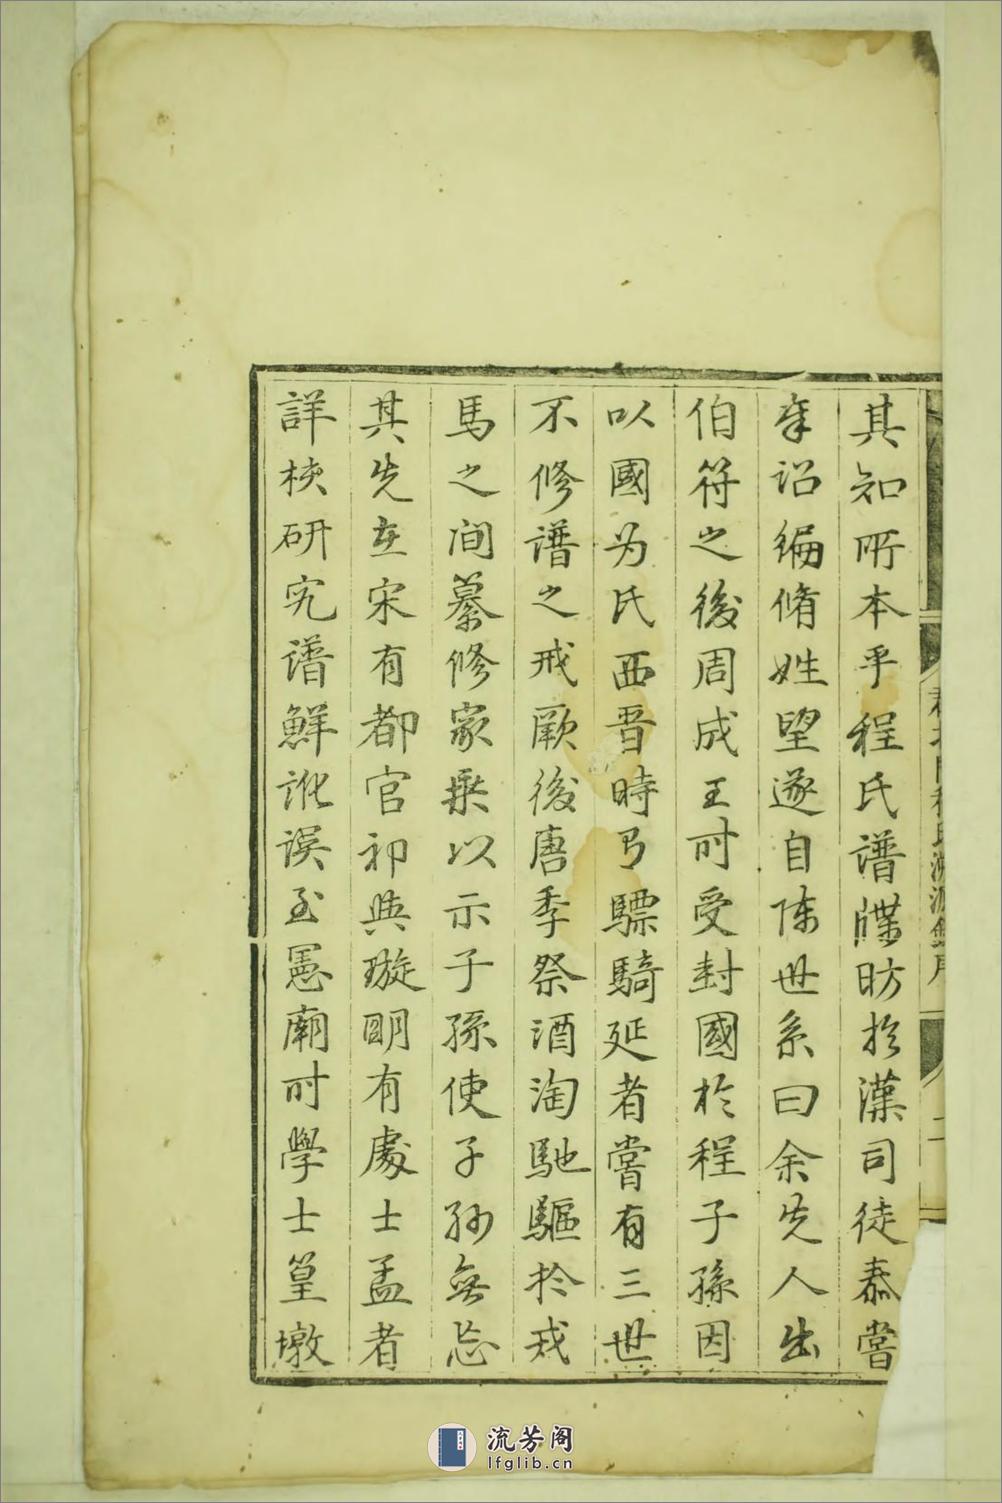 其知所本乎程氏譜牒昉於漢司徒泰嘗
奉诏编脩姓望遂自陈世系曰余先人出
伯符之後周成王时受封國於程子孫因
以國为氏西晋時乃驃騎延者嘗有三世
不修谱之戒厥後唐季祭酒淘馳驅於戎
馬之间纂修家乘以示子孫使子孙無忘
其先在宋有都官祁與璇明有處士孟者
詳挍研究谱鮮訛误至憲廟时學士篁墩
程氏
二
流芳阁
lfglib.cn